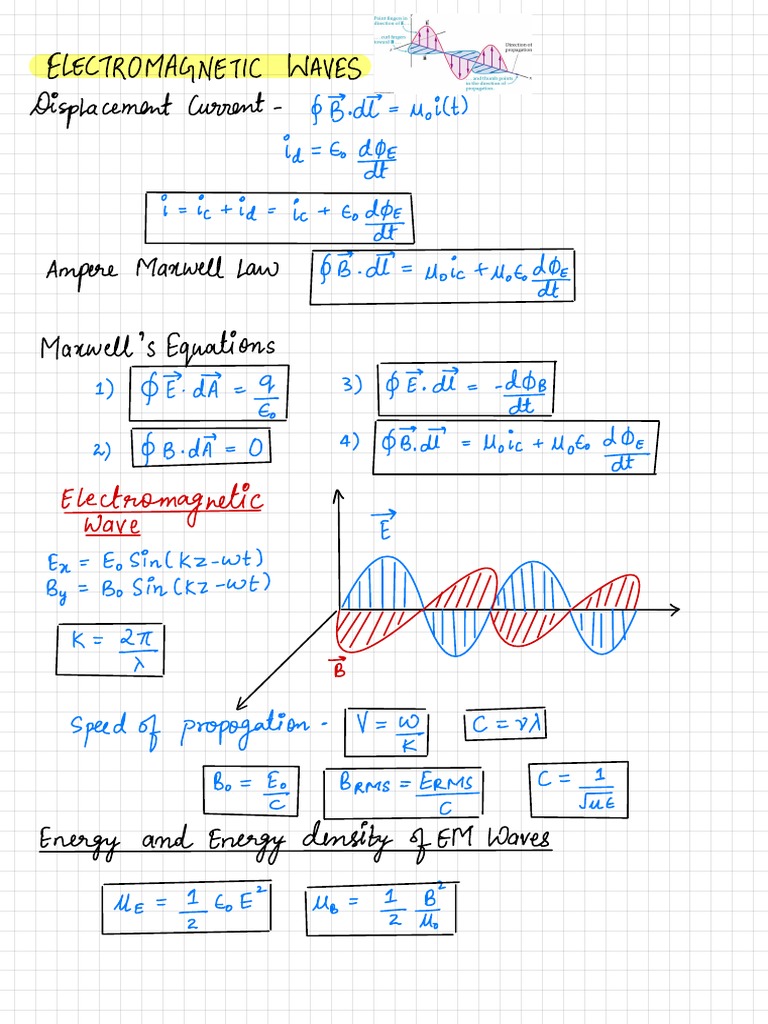 Point fingers in
direction of E
... curl fingers
toward B
E
B
Direction of
propagation
... and thumb points
in the direction of
propagation.
ELECTROMAGNETIC WAVES
Displacement Current - ∮B⃗.dl⃗ = μ₀i(t)
i_d = ε₀ dϕ_E/dt
i = i_c + i_d = i_c + ε₀ dϕ_E/dt
Ampere Maxwell Law ∮B⃗.dl⃗ = μ₀i_c + μ₀ε₀ dϕ_E/dt
Maxwell's Equations
1) ∮E⃗.dA⃗ = q/ε₀
3) ∮E⃗.dl⃗ = -dϕ_B/dt
2) ∮B.dA⃗ = 0
4) ∮B⃗.dl⃗ = μ₀i_c + μ₀ε₀ dϕ_E/dt
Electromagnetic
Wave
E⃗
E_x = E₀ Sin(Kz - ωt)
B_y = B₀ Sin(Kz - ωt)
K = 2π/λ
B⃗
Speed of propogation - V = ω/K C = νλ
B₀ = E₀/C B_RMS = E_RMS/C C = 1/√με
Energy and Energy density of EM Waves
μ_E = 1/2 ε₀E² μ_B = 1/2 B²/μ₀